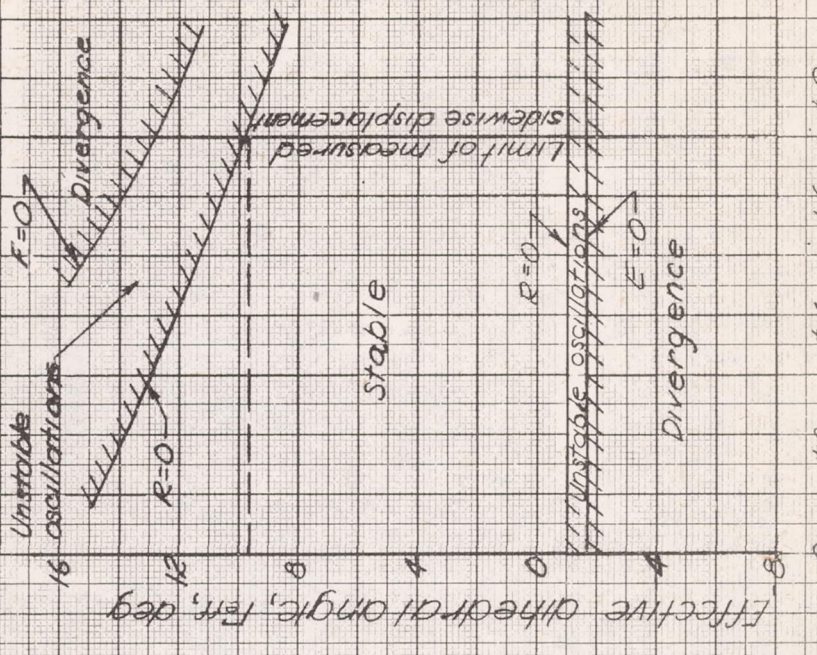 Unstable
oscillations
F=0
Divergence
R=0
Limit of measured
sidewise displacement
Stable
R=0
Unstable oscillations
E=0
Divergence
16
12
8
4
0
4
8
Effective dihedral angle, Γeff, deg